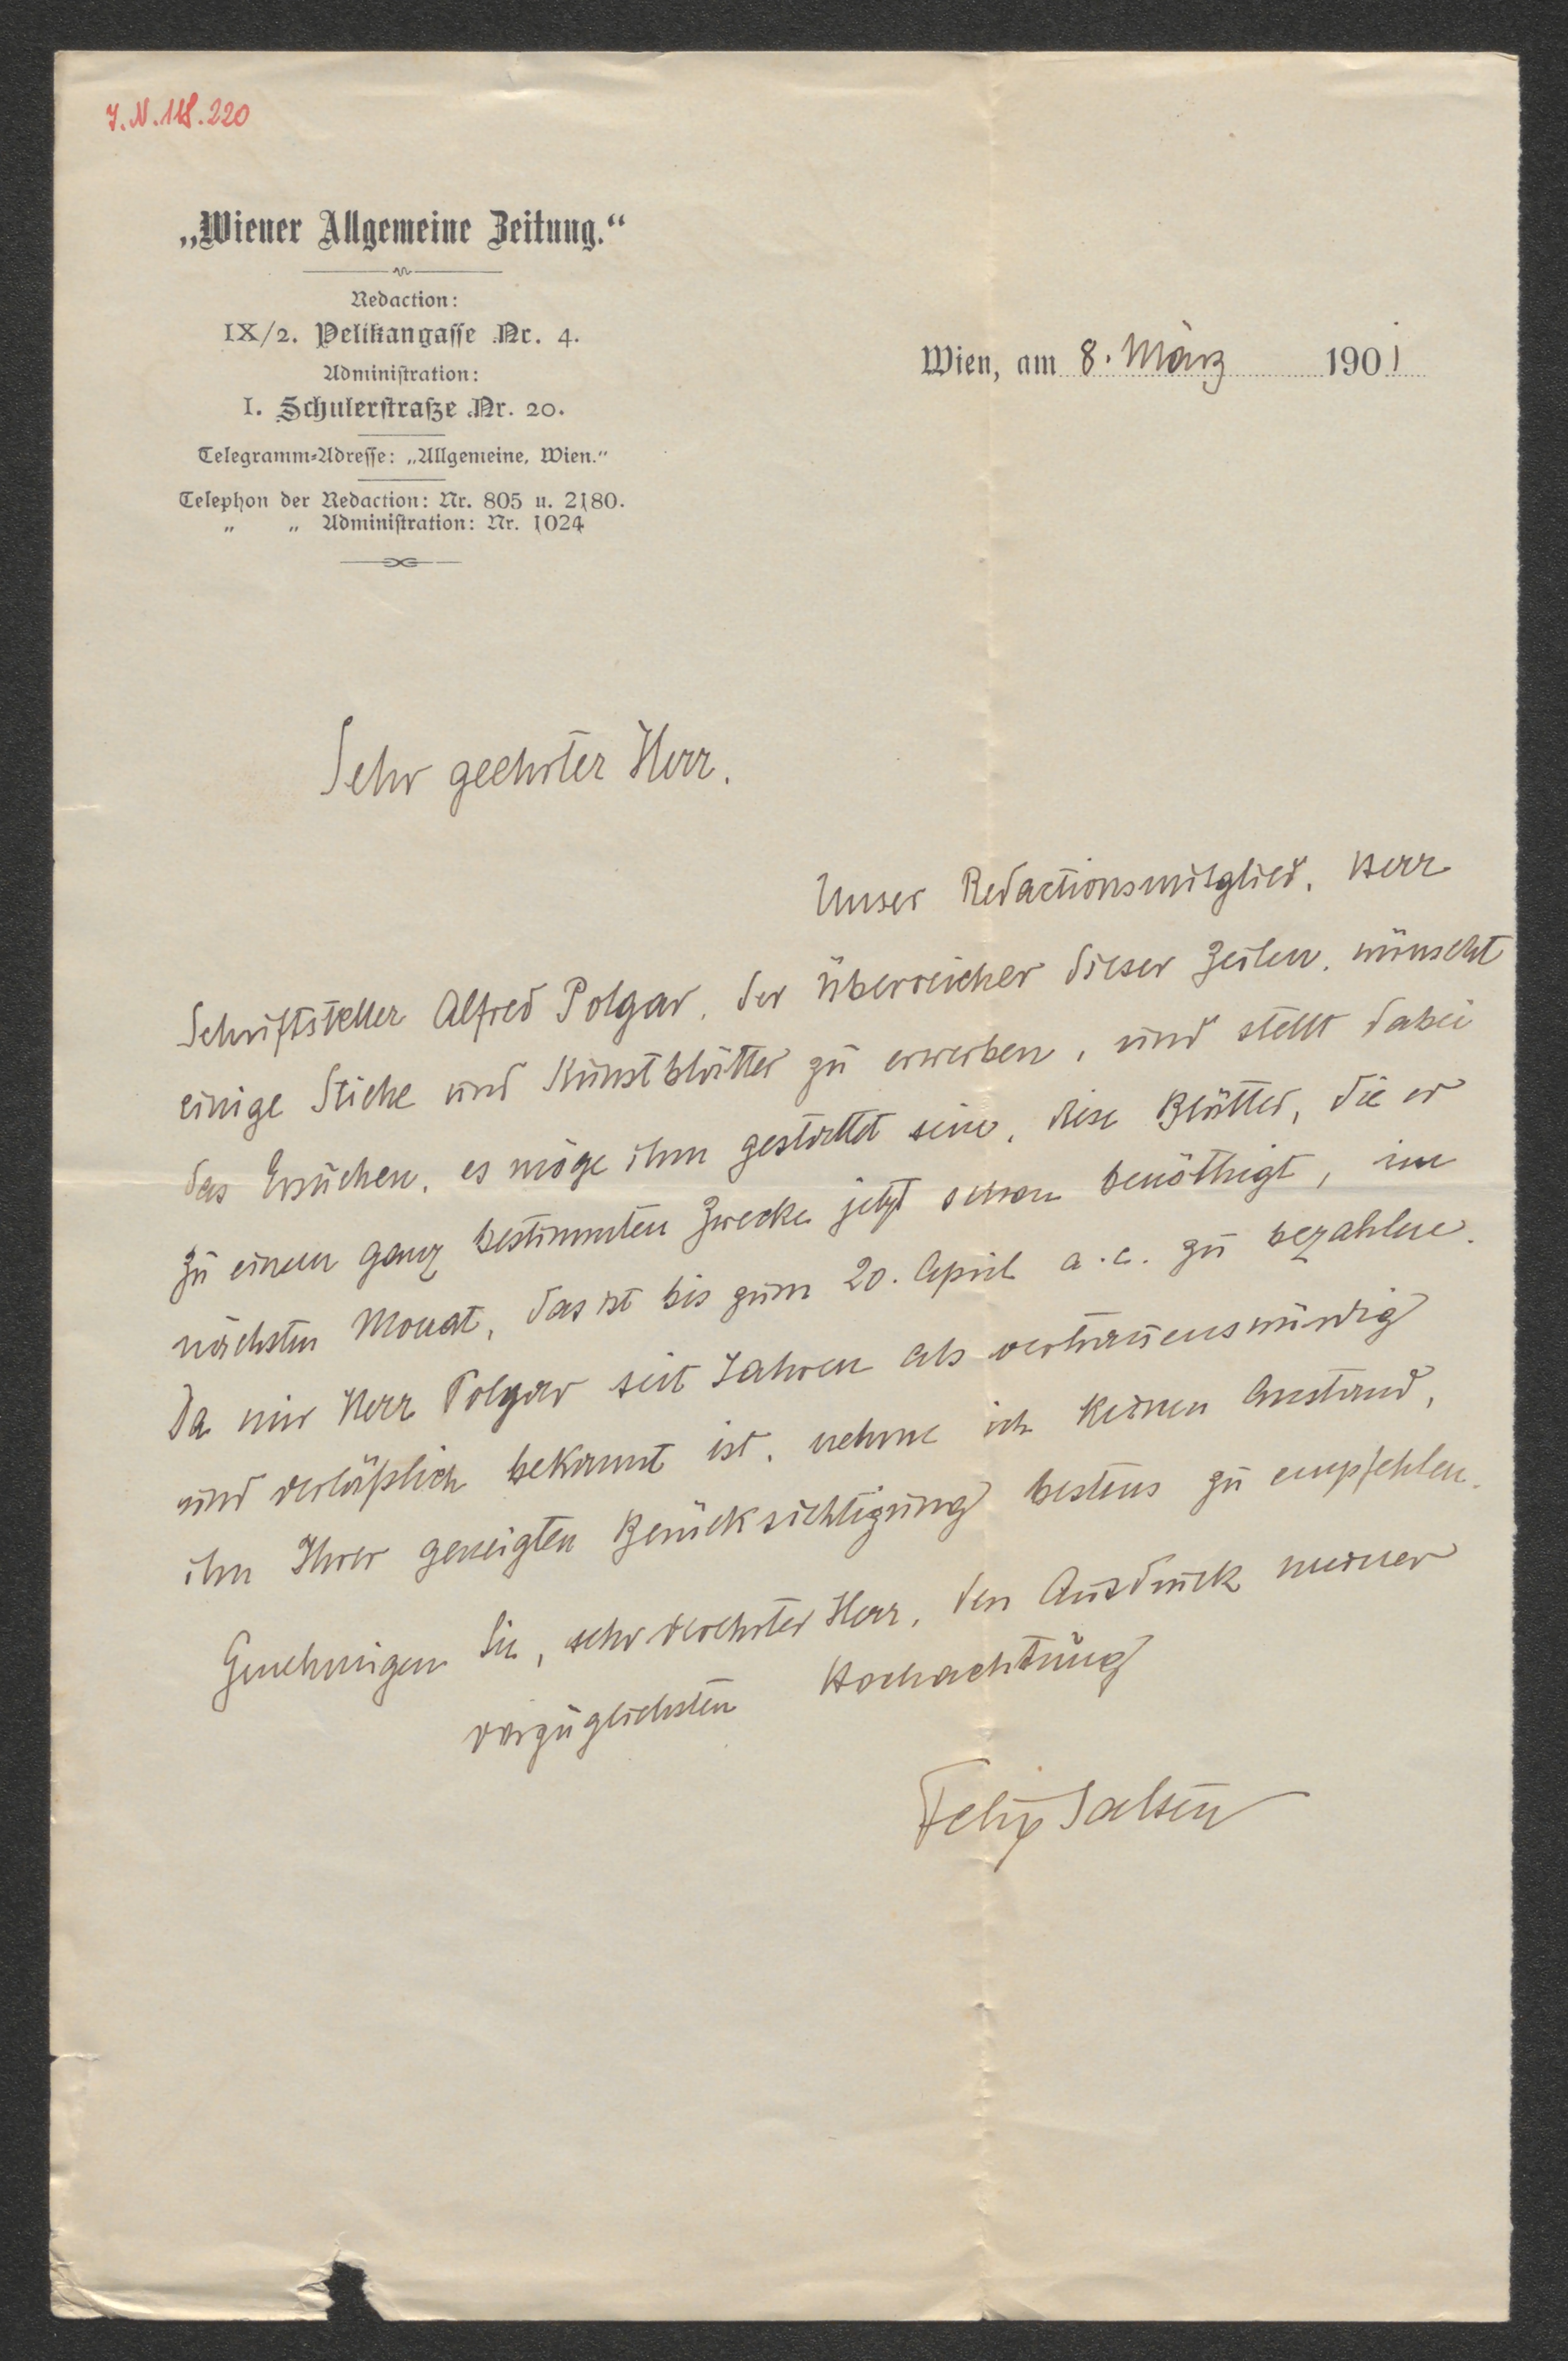 J.N. 118.220
„Wiener Allgemeine Zeitung.“
Redaction:
IX/2. Pelikangasse Nr. 4.
Administration:
I. Schulerstraße Nr. 20.
Telegramm-Adresse: „Allgemeine, Wien.“
Telephon der Redaction: Nr. 805 u. 2180.
„ „ Administration: Nr. 1024
Wien, am 8. März 1901
Sehr geehrter Herr.
Unser Redactionsmitglied, Herr
Schriftsteller Alfred Polgar, der Überreicher dieser Zeilen, wünscht
einige Stiche und Kunstblätter zu erwerben, und stellt dabei
das Ersuchen, es möge ihm gestattet sein, diese Blätter, die er
zu einem ganz bestimmten Zwecke jetzt schon benöthigt, im
nächsten Monat, das ist bis zum 20. April a. c. zu bezahlen.
Da mir Herr Polgar seit Jahren als vertrauenswürdig
und verläßlich bekannt ist, nehme ich keinen Anstand,
ihn Ihrer geneigten Berücksichtigung bestens zu empfehlen.
Genehmigen Sie, sehr verehrter Herr, den Ausdruck meiner
vorzüglichsten Hochachtung
Felix Salten